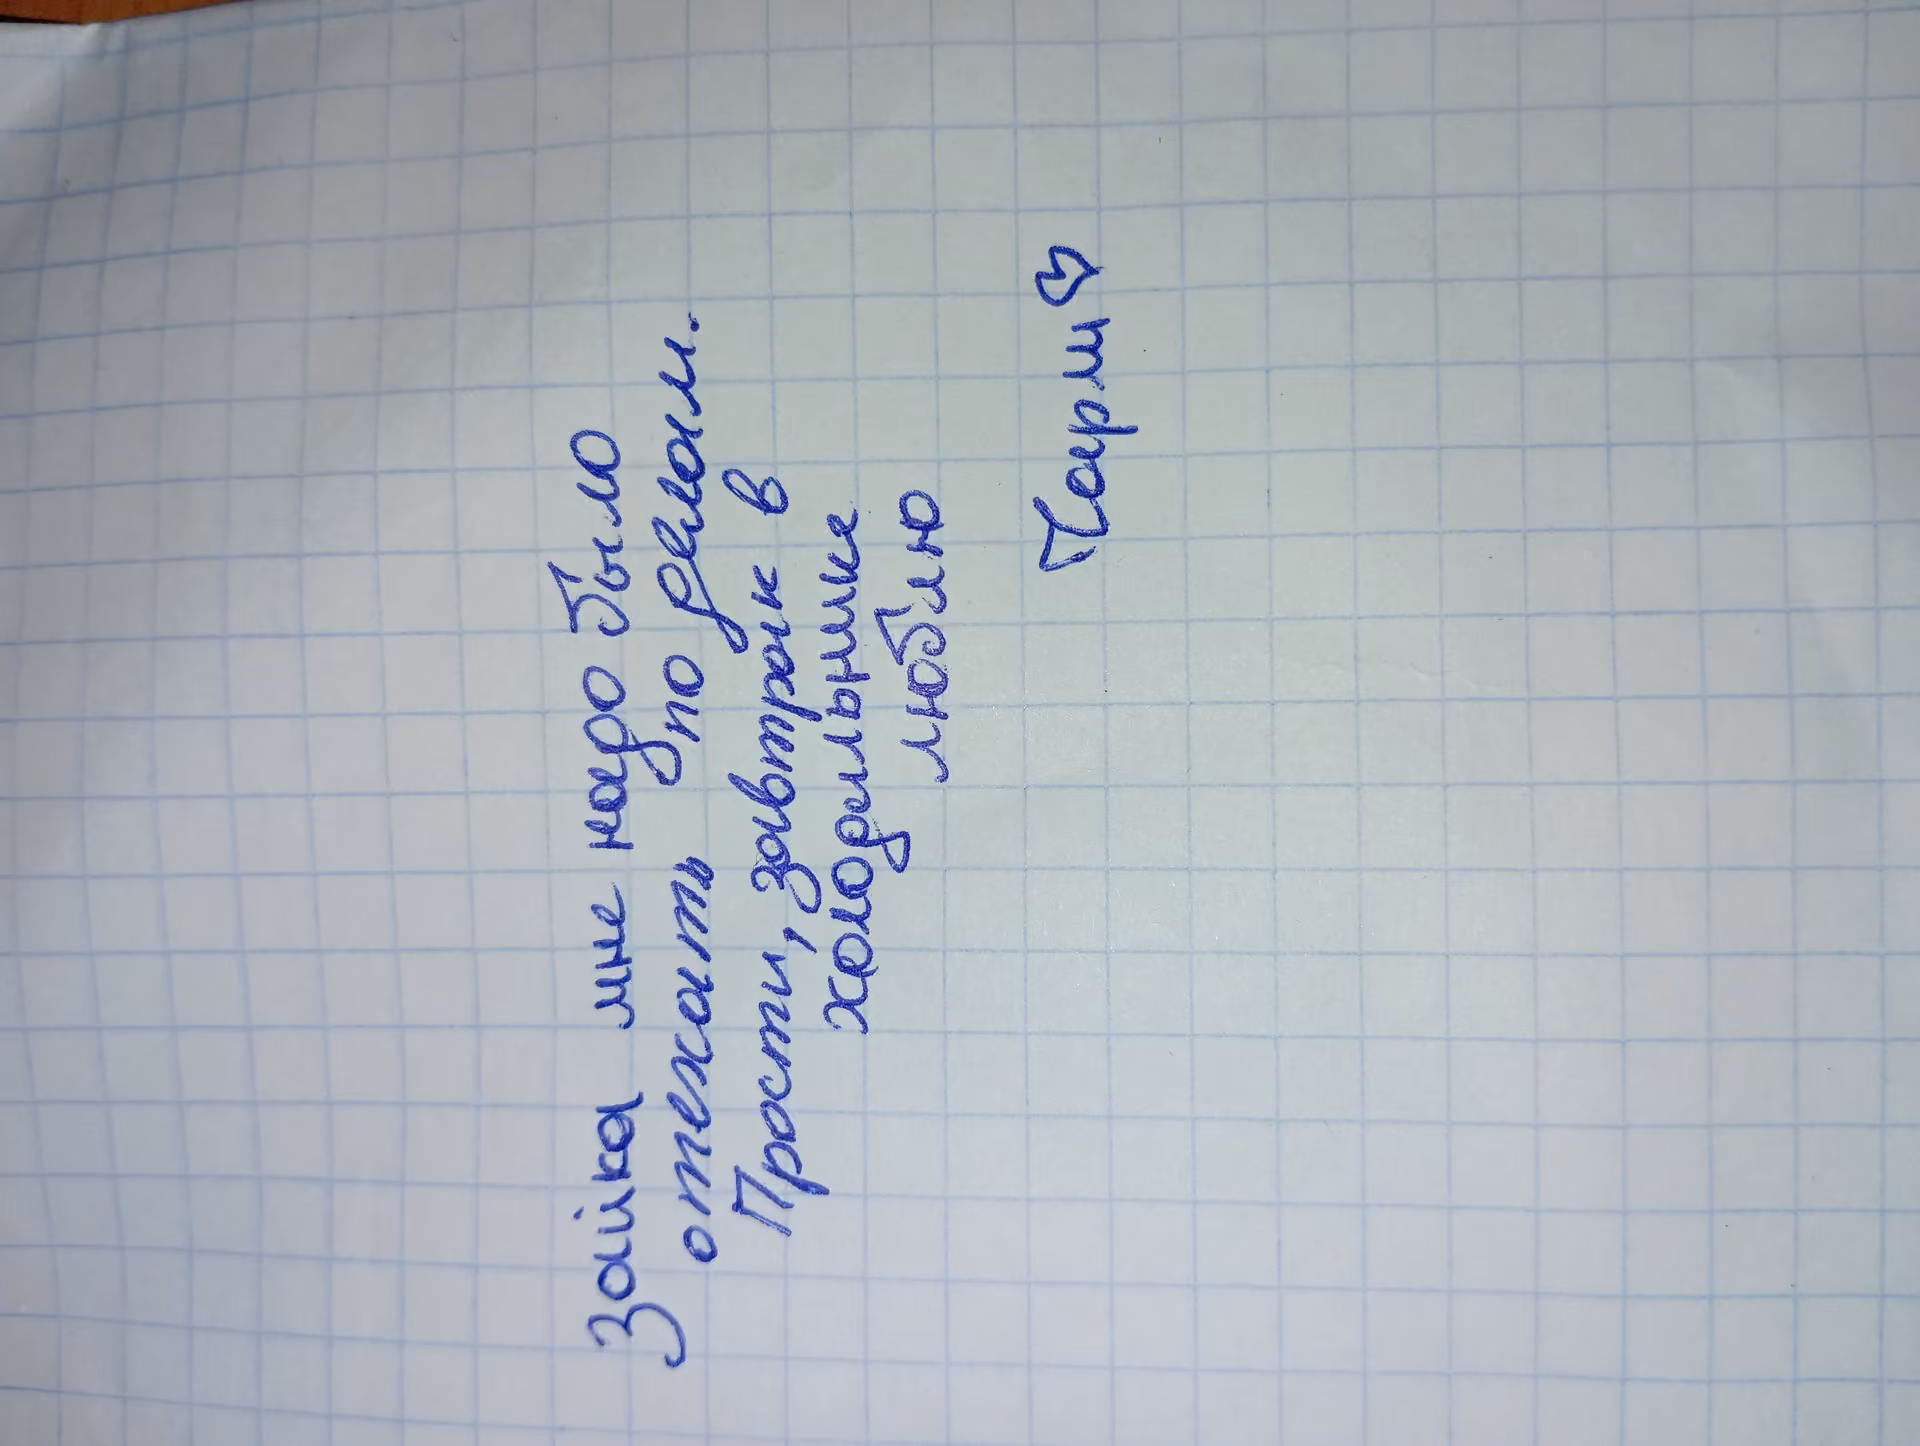 Зайка мне надо было
отехать по делам.
Прости, завтрак в
холодильнике
люблю
Парм